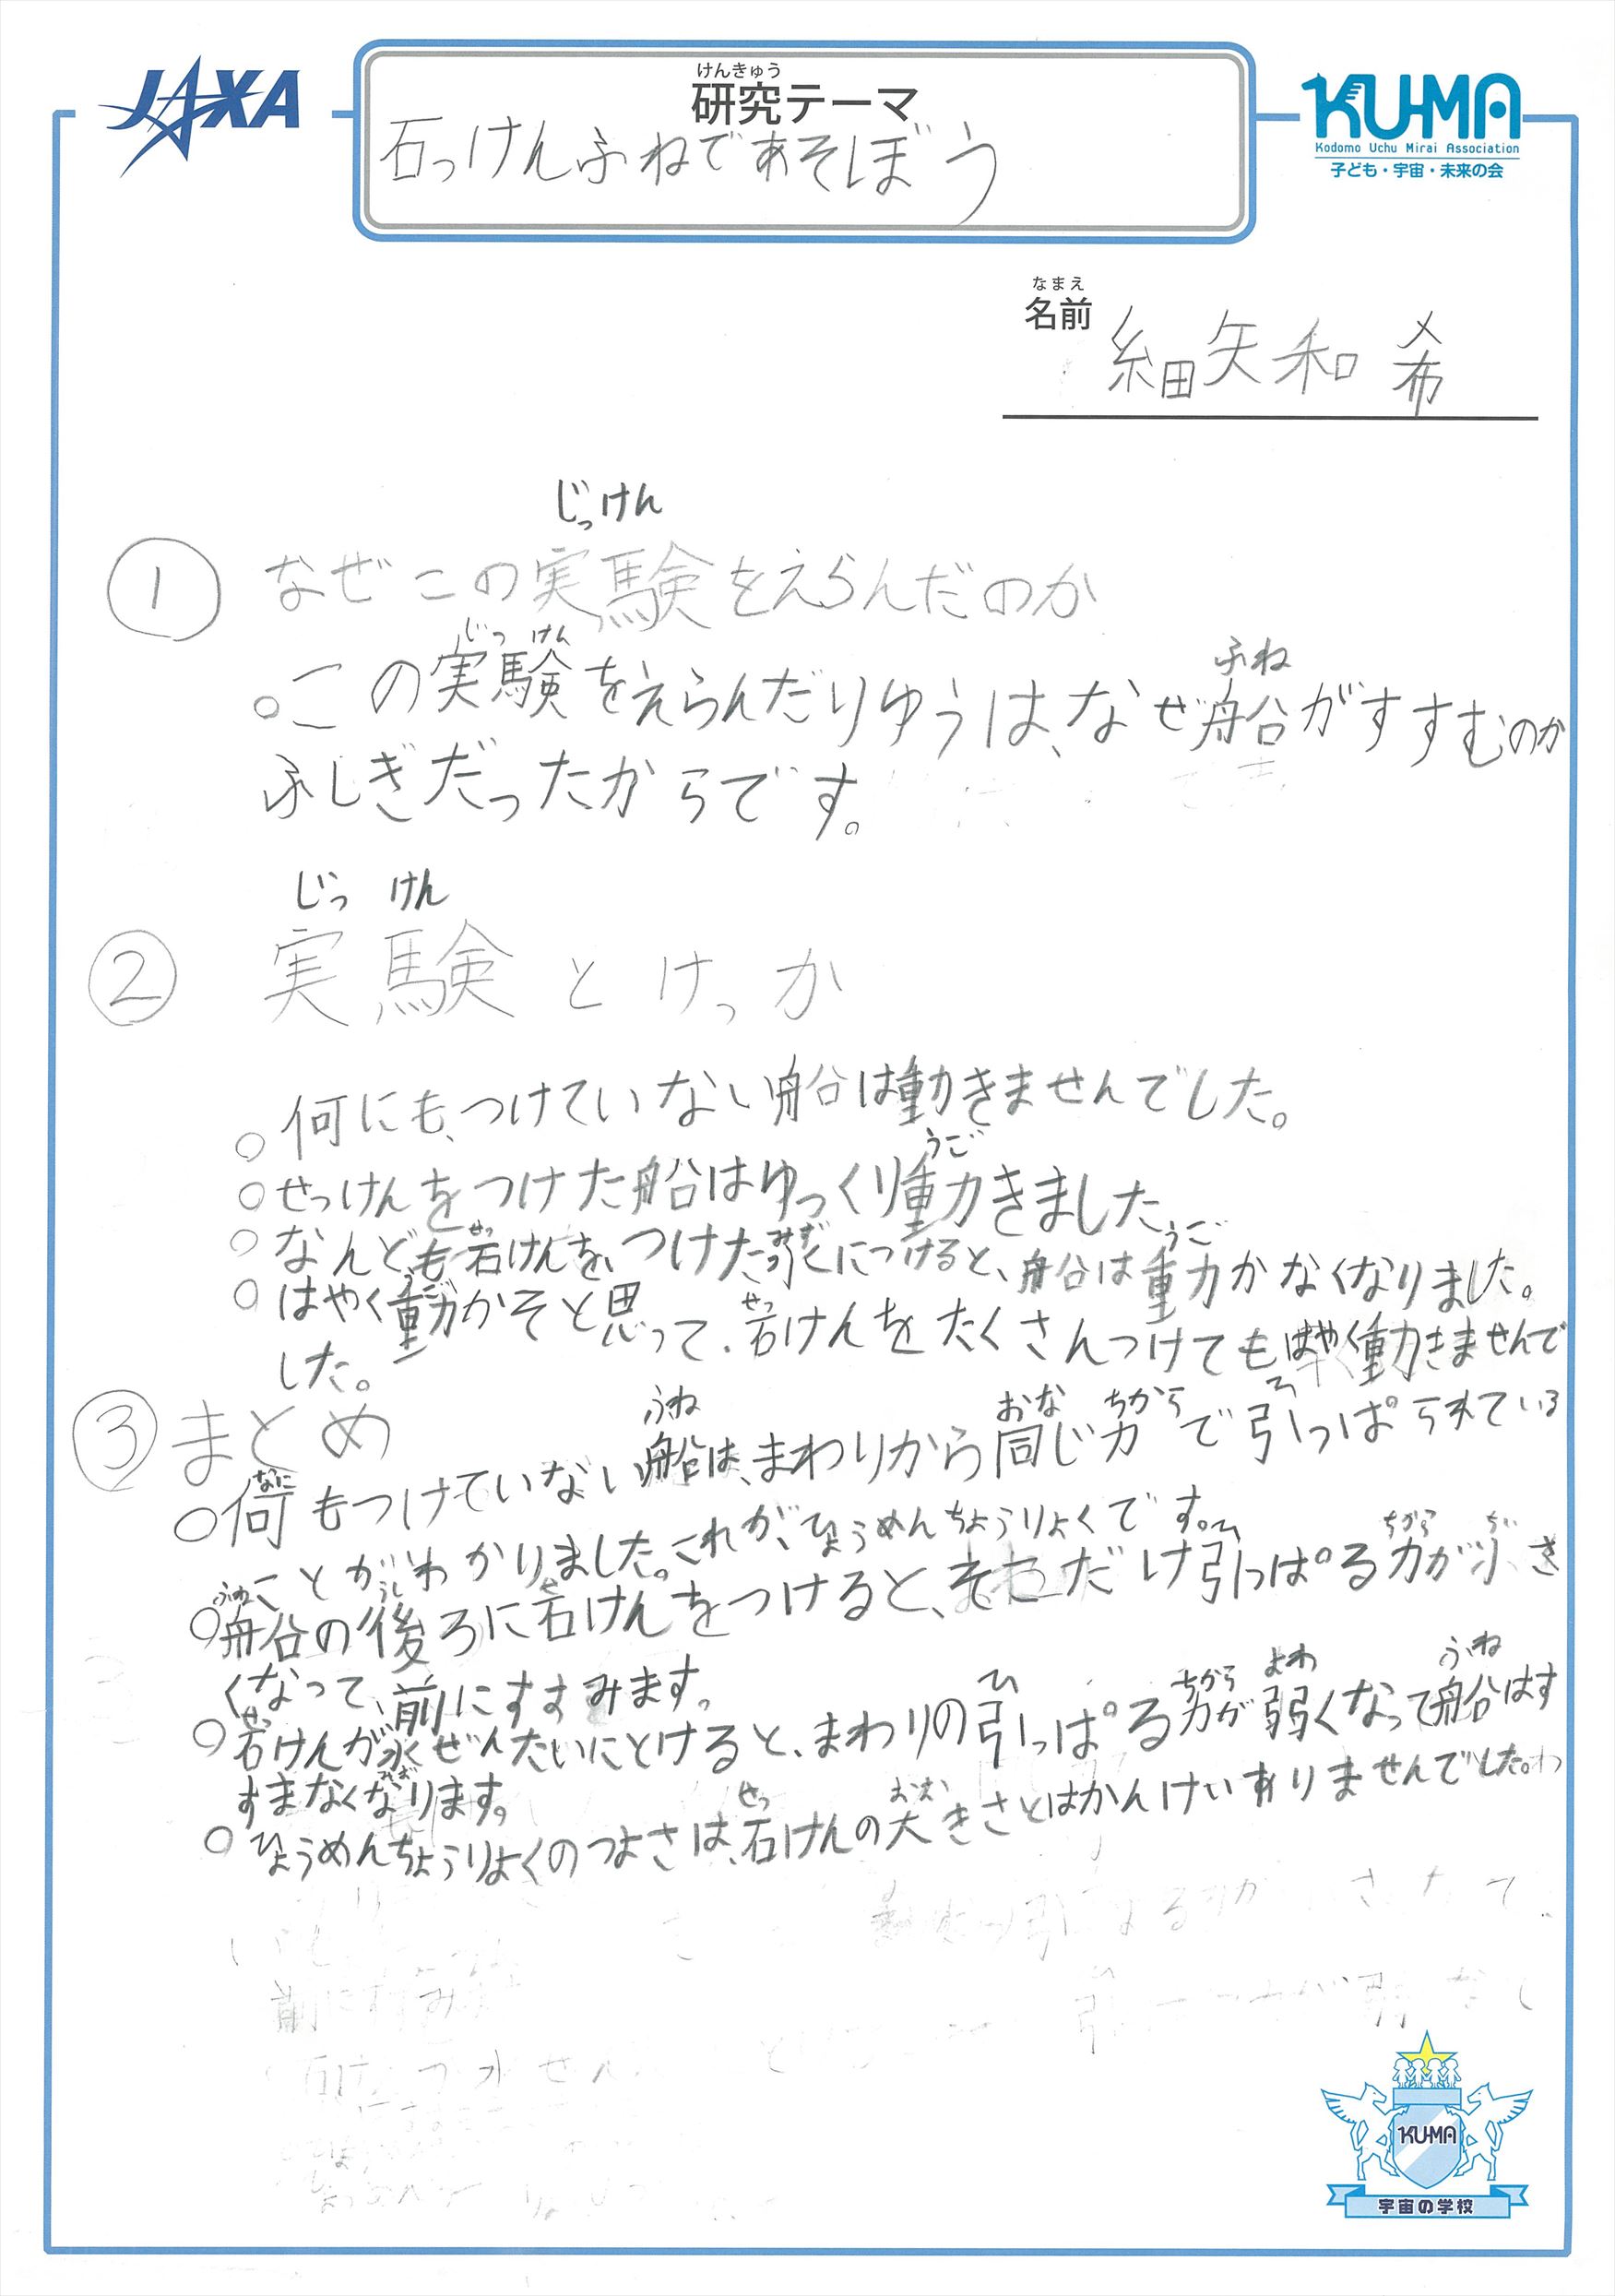 JAXA
けんきゅう
研究テーマ
石っけんふねであそぼう
KU-MA
Kodomo Uchu Mirai Association
子ども・宇宙・未来の会
なまえ
名前
細矢和希
じっけん
① なぜこの実験をえらんだのか
じっけん ふね
○この実験をえらんだりゆうは、なぜ船がすすむのか
ふしぎだったからです。
じっけん
② 実験とけっか
○何にも、つけていない船は動きませんでした。
うご
○せっけんをつけた船はゆっくり動きました、
せっ みず うご
○なんども石けんを、つけた水につけると、船は動かなくなりました。
うご せっ
○はやく動かそと思って、石けんをたくさんつけてもはやく動きませんで
した。
③まとめ
なに ふね おな ちから ひ
○何もつけていない船は、まわりから同じ力で引っぱられている
ことがわかりました。これが、ひょうめんちょうりょくです。
ふね うし せっ ひ ちから ちい
○船の後ろに石けんをつけると、そこだけ引っぱる力が小さ
くなって、前にすすみます。
せっ みず ひ ちから よわ ふね
○石けんが水ぜんたいにとけると、まわりの引っぱる力が弱くなって船はす
すまなくなります。
せっ おお
○ひょうめんちょうりょくのつよさは、石けんの大きさとはかんけいありませんでした。
KU-MA
宇宙の学校